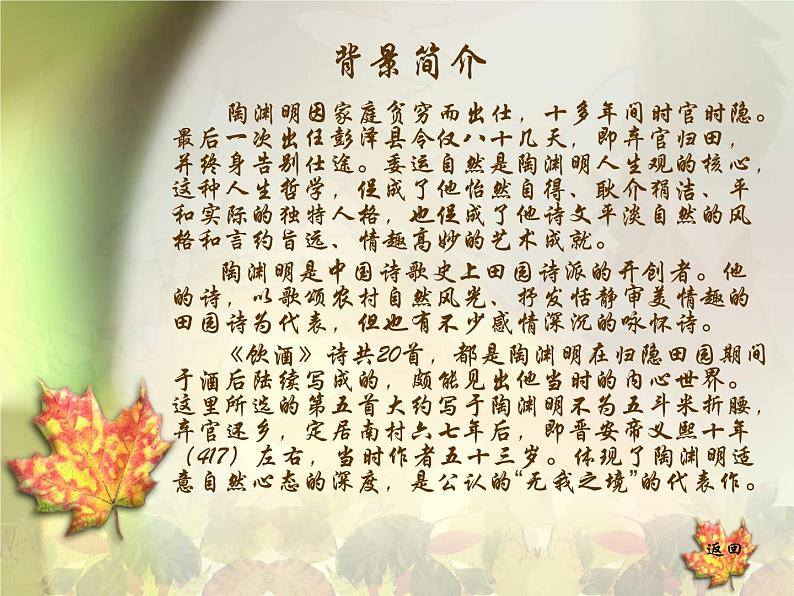 背景简介
陶渊明因家庭贫穷而出仕，十多年间时官时隐。
最后一次出任彭泽县令仅八十几天，即弃官归田，
并终身告别仕途。委运自然是陶渊明人生观的核心，
这种人生哲学，促成了他怡然自得、耿介狷洁、平
和实际的独特人格，也促成了他诗文平淡自然的风
格和言约旨远、情趣高妙的艺术成就。
陶渊明是中国诗歌史上田园诗派的开创者。他
的诗，以歌颂农村自然风光、抒发恬静审美情趣的
田园诗为代表，但也有不少感情深沉的咏怀诗。
《饮酒》诗共20首，都是陶渊明在归隐田园期间
于酒后陆续写成的，颇能见出他当时的内心世界。
这里所选的第五首大约写于陶渊明不为五斗米折腰，
弃官还乡，定居南村六七年后，即晋安帝义熙十年
（417）左右，当时作者五十三岁。体现了陶渊明适
意自然心态的深度，是公认的“无我之境”的代表作。
返回